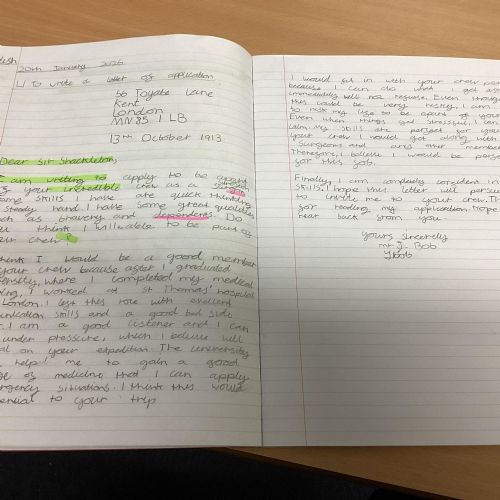 lish
20th January 2026
LI To write a letter of application
56 Toyate Lane
Kent
London
MN35 1LB
13th October 1913
Dear Sir Shackleton,
I am writing to apply to be apart
of your incredible crew as a
some skills I have are quick thinking
steady hand. I have some great qualities
such as bravery and Do
you think I will be able to be part of
your crew?
think I would be a good member
your crew because after I graduated
where I completed my medical
I worked at St Thomas' hospital
London. I left this role with exellent
unication skills and a good bed side
r. I am a good listener and I can
under pressure, which I believe will
al on your expedition. The university
help me to gain a good
ge of medicine that I can apply
rgency situations. I think this would
ential to your trip
I would fit in with your crew per
because I can do what I get as
immediatly will not refuse. Even though
this could be very risky, I am
to risk my life to be apart of your
Even when things get stressful, I can
calm. My skills are perfect for your
your crew I would get along with
surgeons and any other member
Therefore, I believe I would be perfe
for this job.
Finally, I am completly confident in
skills. I hope this letter will persua
to invite me to your crew. Th
for reading my application. Hope
hear back from you.
Yours Sincerelly
mr J. Bob
JBob